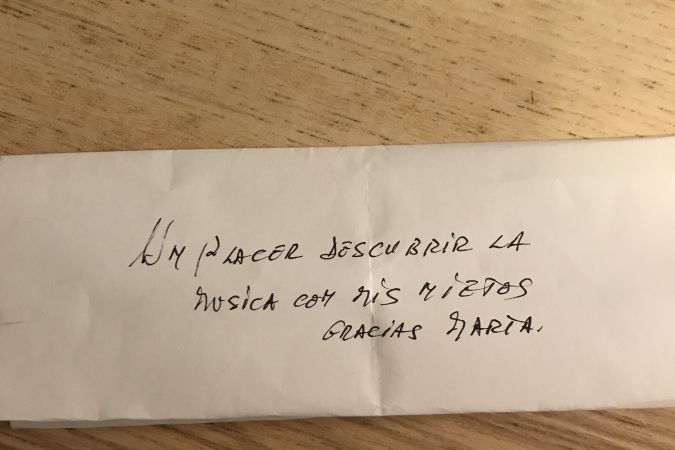 Un PLACER DESCUBRIR LA
MUSICA CON MIS NIETOS
GRACIAS MARTA.